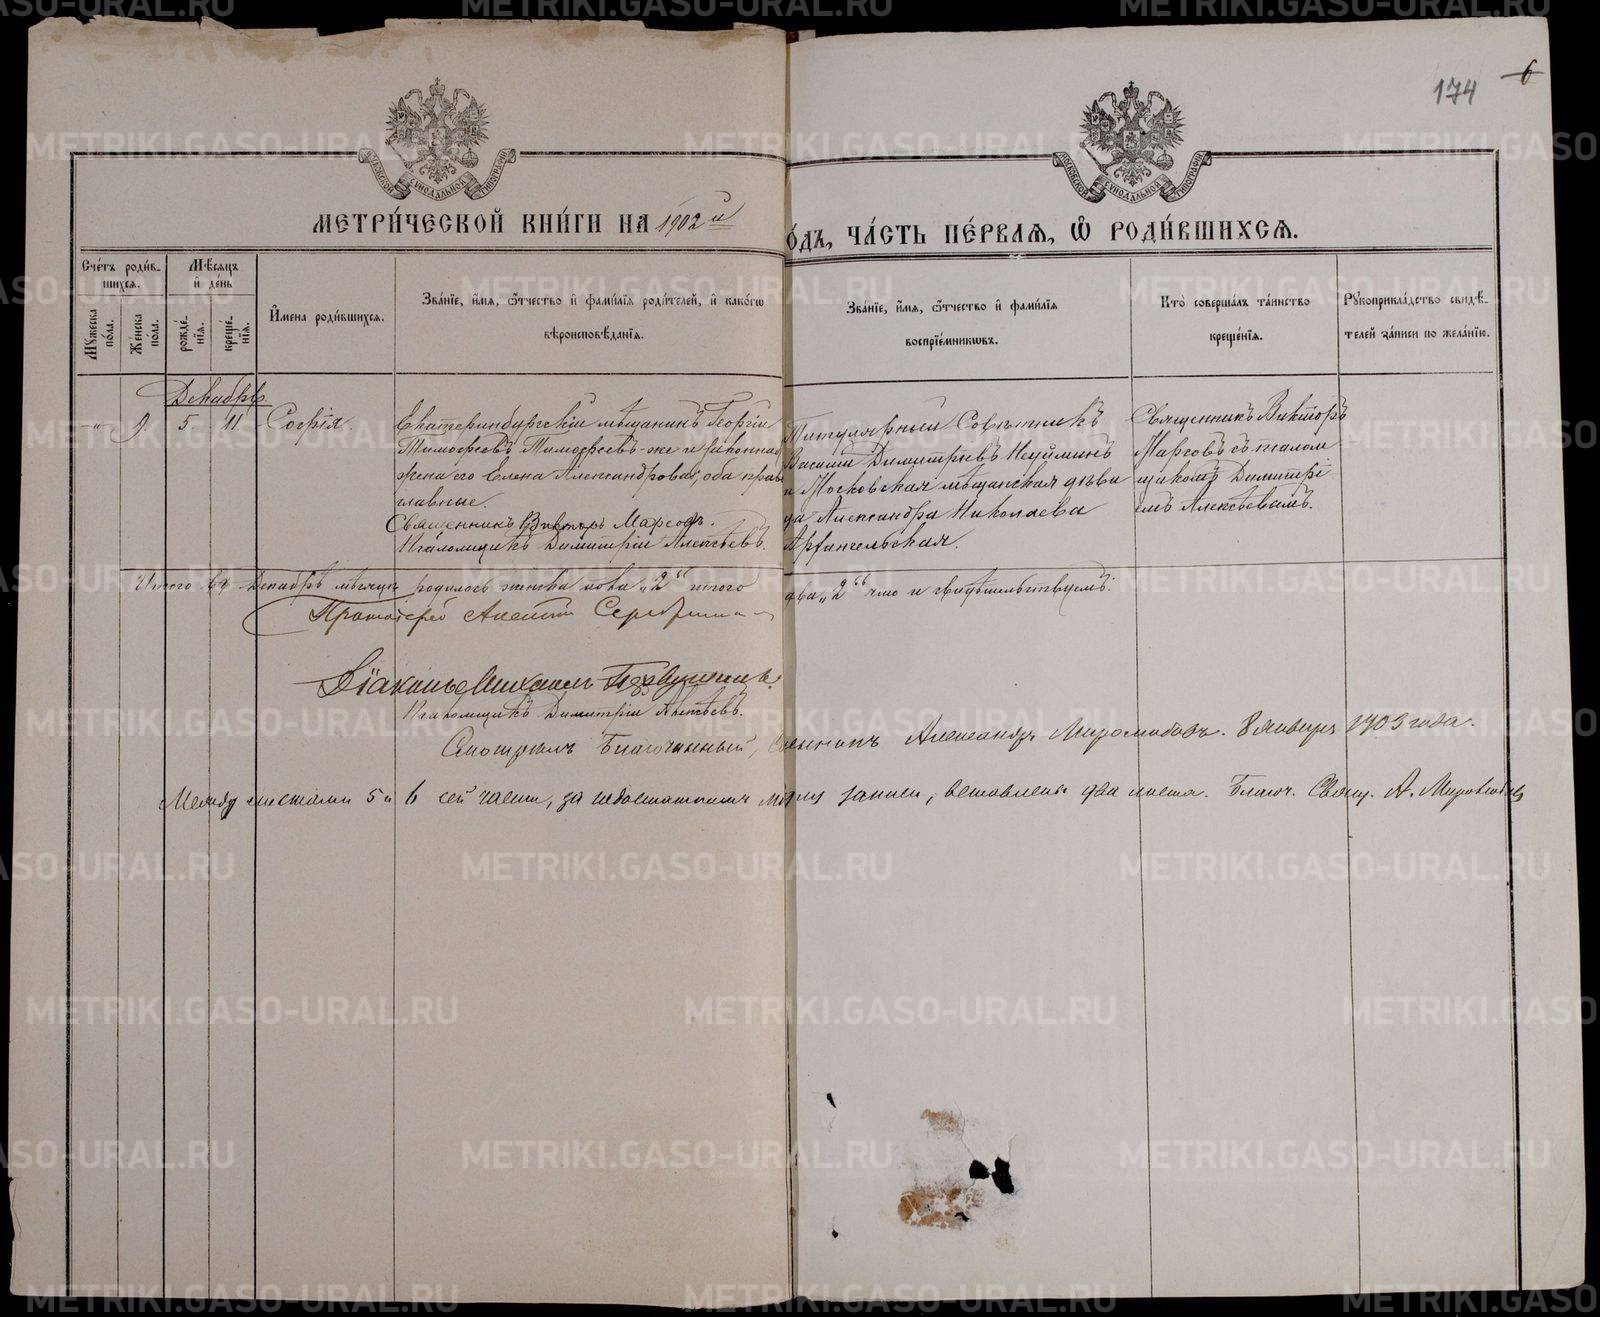 174 6
МОСКОВСКОЙ СѴНОДАЛЬНОЙ ТИПОГРАФІИ
МОСКОВСКОЙ СѴНОДАЛЬНОЙ ТИПОГРАФІИ
МЕТРИ́ЧЕСКОЙ КНИ́ГИ НА 1902й
ГО́ДЪ, ЧА́СТЬ ПЕ́РВАѦ, Ѡ҆ РОДИ́ВШИХСѦ.
Сче́тъ роди́вшихсѧ.
Мꙋ́жеска пола.
Же́нска пола.
Мѣ́сѧцъ и҆ де́нь
рожде́нїѧ.
креще́нїѧ.
И҆мена роди́вшихсѧ.
Зва́нїе, и҆́мѧ, ѻ҆́тчество и҆ фами́лїѧ роди́телей, и҆ како́гѡ
вѣроисповѣ́данїѧ.
Зва́нїе, и҆́мѧ, ѻ҆́тчество и҆ фами́лїѧ
воспрїе́мникѡвъ.
Кто̀ соверша́лъ та́инство
креще́нїѧ.
Рꙋкоприкла́дство свидѣ́телей за́писи по жела́нїю.
Декабрь
-"- 9 5 11 Софія.
Екатеринбургскій мѣщанинъ Георгій
Тимофеевъ Тимофеевъ-же и законная
жена его Елена Александровна, оба право
славные.
Священникъ Викторъ Марсовъ.
Псаломщикъ Димитрій Алексѣевъ.
Титулярный Совѣтникъ
Василій Димитріевъ Неуйминъ
и Московская мѣщанская дѣви
ца Александра Николаева
Архангельская.
Священникъ Викторъ
Марсовъ съ псалом
щикомъ Димитрі
емъ Алексѣевымъ.
Итого въ Декабрѣ мѣсяцѣ родилось женска пола „2" итого два „2" что и свидѣтельствуемъ:
Протоіерей Алексій
Діаконъ Михаилъ
Псаломщикъ Димитрій Алексѣевъ.
Смотрѣлъ Благочинный, Священникъ Александръ Миролюбовъ. 8 Января 1903 года.
Между листами 5 и 6 сей части, за недостаткомъ мѣста записи, вставлены два листа. Благоч. Свящ. А. Миролюбовъ
METRIKI.GASO-URAL.RU